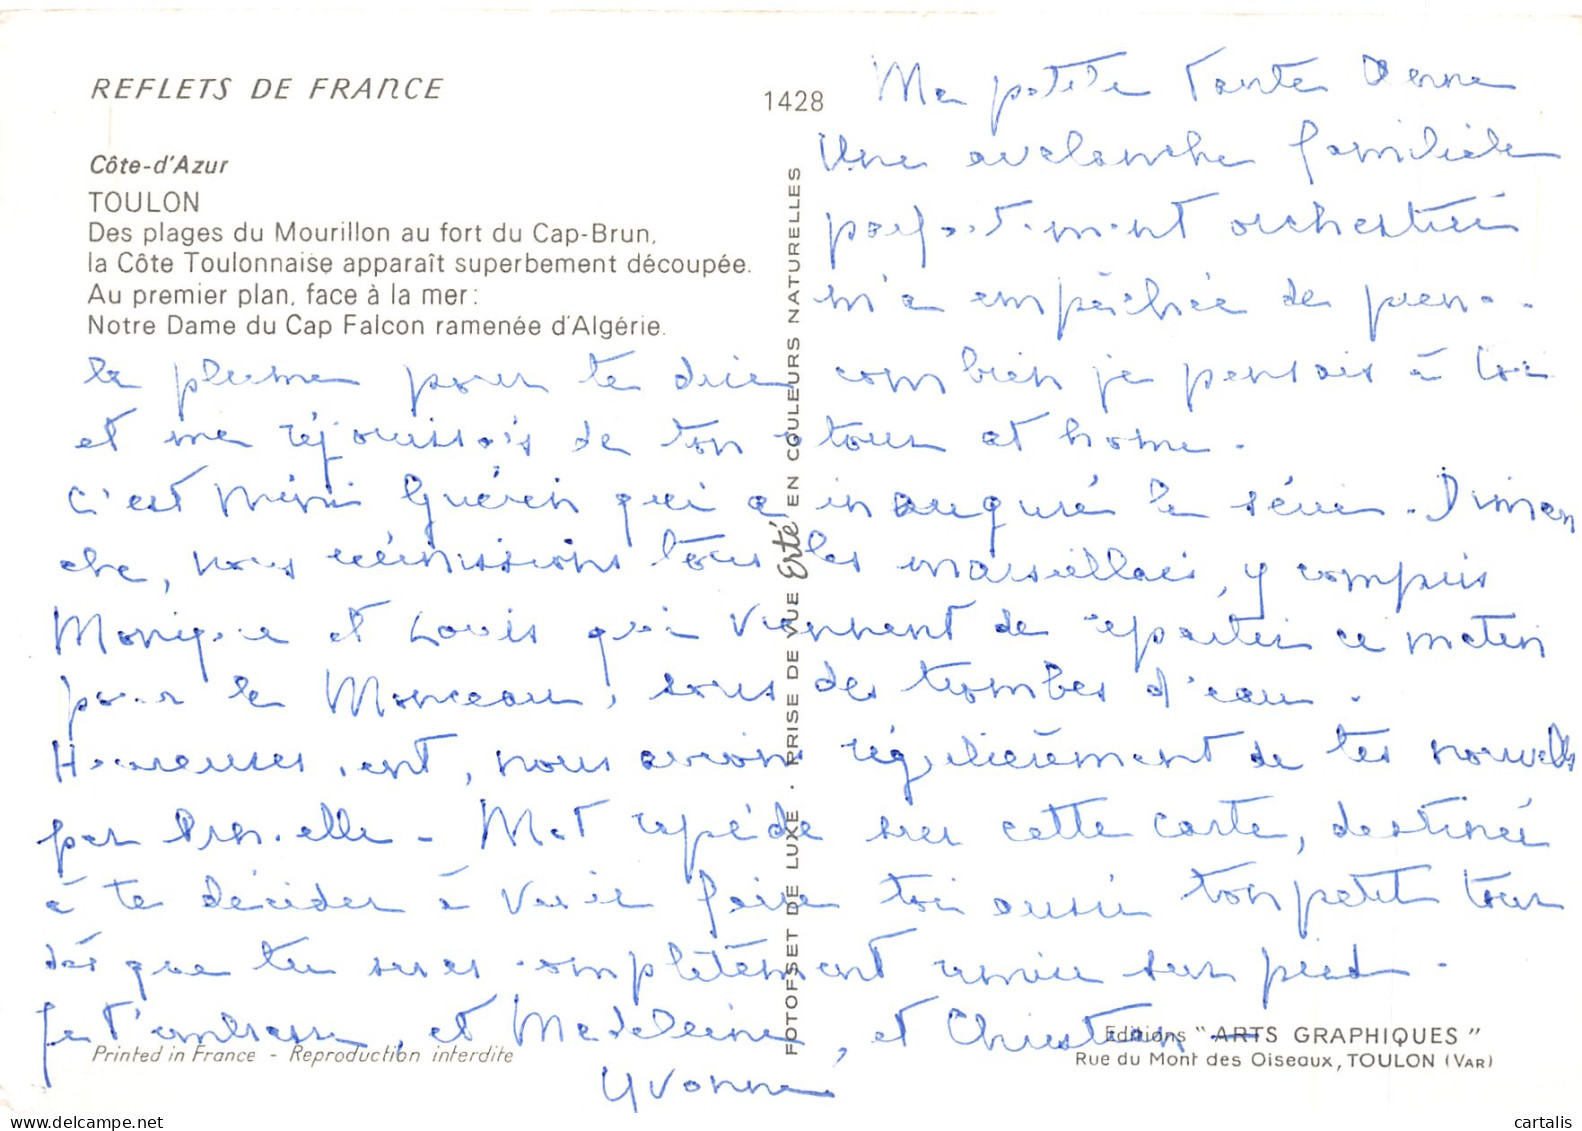 REFLETS DE FRANCE
1428
Côte-d'Azur
TOULON
Des plages du Mourillon au fort du Cap-Brun,
la Côte Toulonnaise apparaît superbement découpée.
Au premier plan, face à la mer :
Notre Dame du Cap Falcon ramenée d'Algérie.
Ma petite Tante
Une avalanche familiale
parfaitement orchestrée
m'a empêchée de
la plume pour te dire combien je pensais à toi
et me réjouissais de ton retour at home.
C'est Mimi Guérin qui a inauguré la série. Diman
che, nous réunissions tous les marseillais, y compris
Monique et Louis qui viennent de repartir ce matin
pour le Monceau, sous des trombes d'eau.
Heureusement, nous avions régulièrement de tes nouvelles
par. Mot rapide sur cette carte, destinée
à te décider à venir faire toi aussi ton petit tour
dès que tu seras complètement remise sur pied.
Je t'embrasse, et Madeleine, et Christian
Yvonne
FOTOFSET DE LUXE · PRISE DE VUE Erté EN COULEURS NATURELLES
Printed in France - Reproduction interdite
Editions "ARTS GRAPHIQUES"
Rue du Mont des Oiseaux, TOULON (VAR)
cartalis